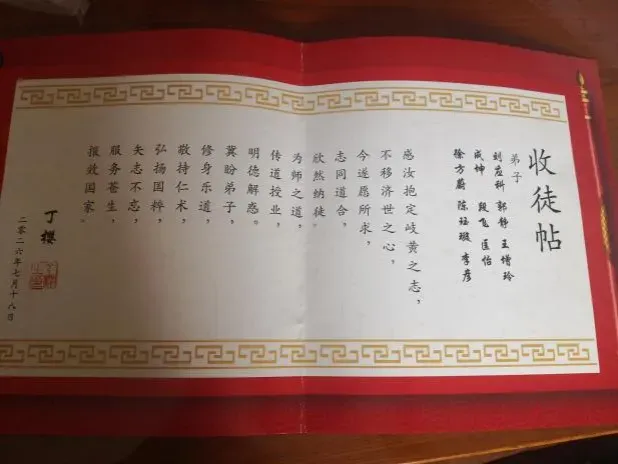 收徒帖
弟子
刘应科 郭静 王增玲
成坤 段飞 匡怡
徐方蔚 陈珏璇 李彦
感汝抱定岐黄之志，
不移济世之心，
今遂愿所求，
志同道合，
欣然纳徒。
为师之道，
传道授业，
明德解惑。
冀盼弟子，
修身乐道，
敬持仁术，
弘扬国粹，
矢志不忘，
服务苍生，
报效国家。
丁樱
二零二六年七月十八日